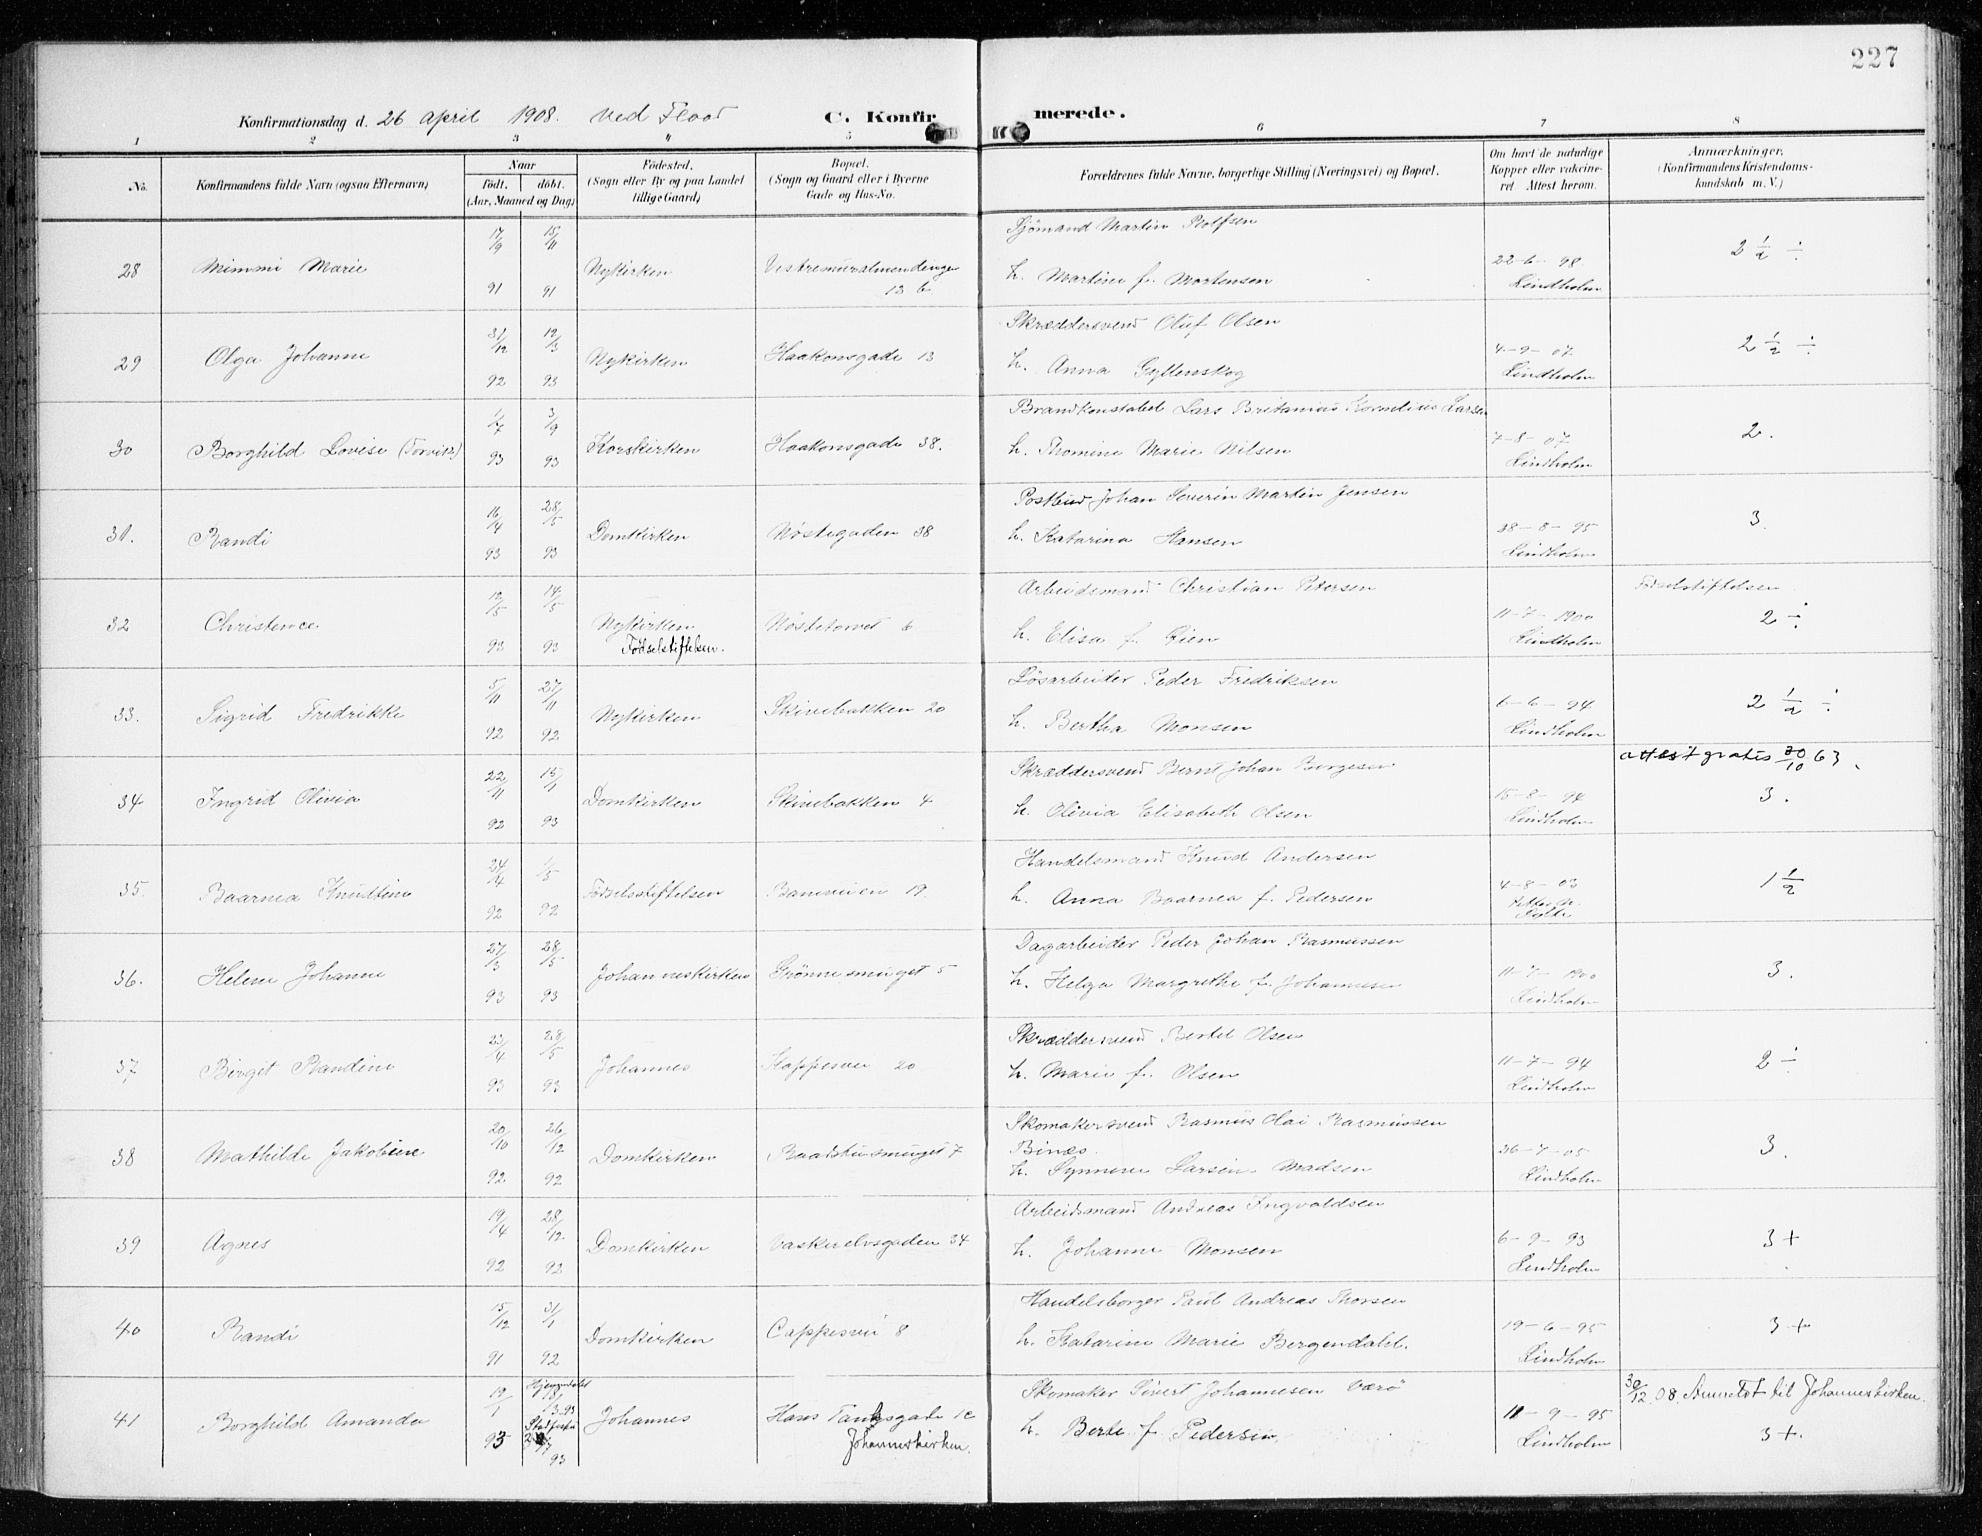 227
Konfirmationsdag d. 26 April 1908. Ved Floor C. Konfirmerede.
1 2 3 4 5 6 7 8
No.
Konfirmandens fulde Navn (ogsaa Efternavn)
Naar
født. døbt.
(Aar, Maaned og Dag)
Fødested.
(Sogn eller By og paa Landet
tillige Gaard)
Bopæl.
(Sogn og Gaard eller i Byerne
Gade og Hus-No.
Forældrenes fulde Navne, borgerlige Stilling (Næringsvei) og Bopæl.
Om havt de naturlige
Kopper eller vakcine-
ret Attest herom.
Anmærkninger.
(Konfirmandens Kristendoms-
kundskab m. V.)
28 Mimmi Marie 17/9 91 15/11 91 Nykirken Vestremuralmendinge 13 b
Sjømand Martin Rolfsen
h. Martine f. Mortensen
22-6-98 Lindholm 2 1/2 ÷
29 Olga Johanne 31/12 92 12/3 93 Nykirken Haakonsgade 13
Skræddersvend Oluf Olsen
h. Anna Gyllenskog
4-9-07 Lindholm 2 1/2 ÷
30 Borghild Lovise (Torvik) 1/7 93 3/9 93 Korskirken Haakonsgade 38.
Brandkonstabel Lars Britanius Kornelius Larsen
h. Thomine Marie Nilsen
7-8-07 Lindholm 2.
31. Randi 16/4 93 28/5 93 Domkirken Nøstegaden 38
Postbud Johan Severin Martin Jensen
h. Katarina Hansen
28-8-95 Lindholm 3.
32 Christence 12/5 93 14/5 93 Nykirken Fødselstiftelsen. Nøstetorvet 6
Arbeidsmand Christian Petersen
h. Elisa f. Øien
11-7-1900 Lindholm Fødselsstiftelsen 2 ÷
33. Sigrid Fredrikke 5/11 92 27/11 92 Nykirken Skivebakken 20
Løsarbeider Peder Fredriksen
h. Bertha Monsen
6-6-94 Lindholm 2 1/2 ÷
34 Ingrid Olivia 22/11 92 15/1 93 Domkirken Skivebakken 4
Skræddersvend Bernt Johan Børgesen
h. Olivia Elisabeth Olsen
15-8-94 Lindholm attest gratis 30/10 63. 3.
35. Baarnea Knudtine 24/4 92 1/5 92 Fødselsstiftelsen Baneveien 19.
Handelsmand Knud Andersen
h. Anna Baarnea f. Pedersen
4-8-03 1 1/2
36. Helene Johanne 27/3 93 28/5 93 Johanneskirken Grønnesmuget 5
Dagarbeider Peder Johan Rasmussen
h. Helga Margrethe f. Johannesen
11-7-1900 Lindholm 3.
37. Birgit Randine 23/4 93 28/5 93 Johannes Kappesvei 20
Skræddersvend Bertel Olsen
h. Marie f. Olsen
11-7-94 Lindholm 2 ÷
38 Mathilde Jakobine 20/10 92 26/12 92 Domkirken Raadstusmuget 7
Skomakersvend Rasmus Olai Rasmussen
Binæs.
h. Synnøve Larsine Madsen
26-7-05 Lindholm 3.
39 Agnes 19/4 92 28/12 92 Domkirken Vaskerelvsgaden 34
Arbeidsmand Andreas Ingvaldsen
h. Johanne Monsen
6-9-93 Lindholm 3+
40 Randi 15/12 91 31/1 92 Domkirken Cappesvei 8
Handelsborger Paul Andreas Thorsen
h. Katarine Marie Bergendahl.
19-6-95 Lindholm 3+
41 Borghild Amanda 19/1 93 Hjemmedøbt Johannes Hans Tanksgade 1c Johanneskirken.
Skomaker Sivert Johannesen Værø
h. Berte f. Pedersen
11-9-95 Lindholm 30/12 08. Anmeldt til Johanneskirken. 3+.